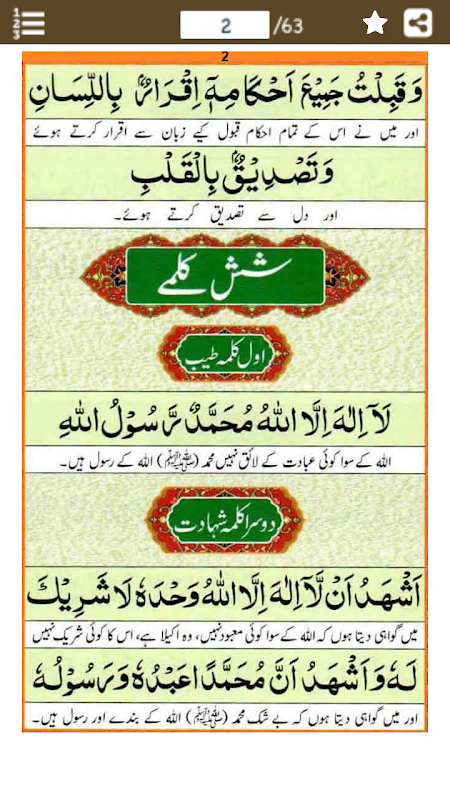 2 /63
2
وَقَبِلْتُ جَمِيْعَ اَحْكَامِهٖٓ اِقْرَارٌۢ بِاللِّسَانِ
اور میں نے اس کے تمام احکام قبول کیے زبان سے اقرار کرتے ہوئے
وَتَصْدِيْقٌۢ بِالْقَلْبِ
اور دل سے تصدیق کرتے ہوئے۔
شش کلمے
اول کلمہ طیب
لَآ اِلٰهَ اِلَّا اللّٰهُ مُحَمَّدٌ رَّسُوْلُ اللّٰهِ
اللہ کے سوا کوئی عبادت کے لائق نہیں محمد (ﷺ) اللہ کے رسول ہیں۔
دوسرا کلمہ شہادت
اَشْهَدُ اَنْ لَّآ اِلٰهَ اِلَّا اللّٰهُ وَحْدَهٗ لَا شَرِيْكَ
میں گواہی دیتا ہوں کہ اللہ کے سوا کوئی معبود نہیں، وہ اکیلا ہے، اس کا کوئی شریک نہیں
لَهٗ وَاَشْهَدُ اَنَّ مُحَمَّدًا عَبْدُهٗ وَرَسُوْلُهٗ
اور میں گواہی دیتا ہوں کہ بے شک محمد (ﷺ) اللہ کے بندے اور رسول ہیں۔